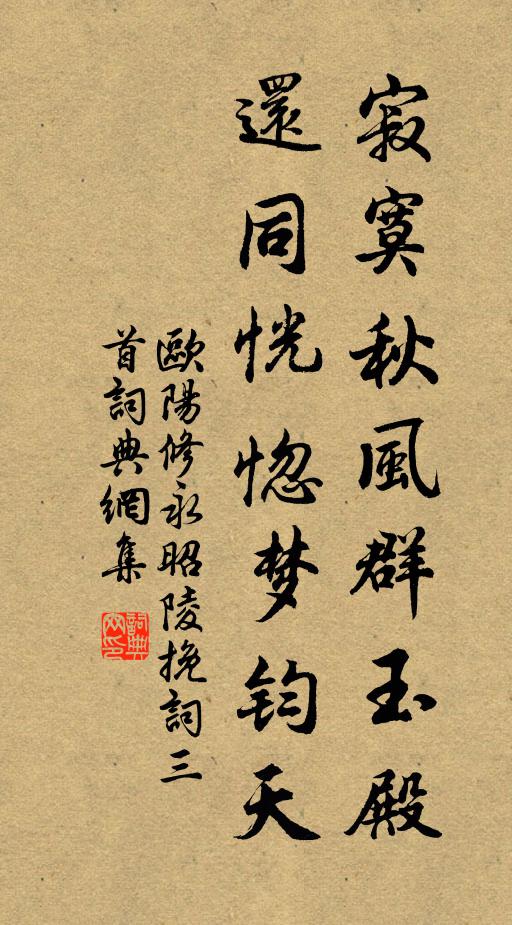 寂寞秋風群玉殿
還同恍惚梦钧天
歐陽修永昭陵挽詞三
首詞典網集
詞典網印